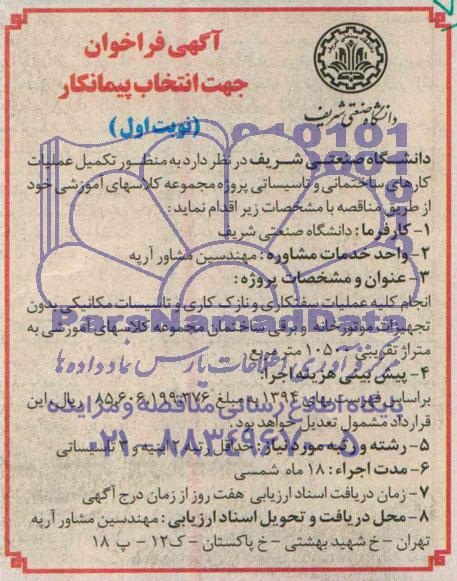 آگهی فراخوان
جهت انتخاب پیمانکار
(نوبت اول)
دانشگاه صنعتی شریف
دانشگاه صنعتی شریف در نظر دارد به منظور تکمیل عملیات
کارهای ساختمانی و تاسیساتی پروژه مجموعه کلاسهای آموزشی خود
از طریق مناقصه با مشخصات زیر اقدام نماید:
۱- کارفرما: دانشگاه صنعتی شریف
۲- واحد خدمات مشاوره: مهندسین مشاور آرپه
۳- عنوان و مشخصات پروژه:
انجام کلیه عملیات سفتکاری و نازک کاری و تاسیسات مکانیکی بدون
تجهیزات موتورخانه و برقی ساختمان مجموعه کلاسهای آموزشی به
متراژ تقریبی ۱۰۵۰۰ متر مربع
ParsNamadData
مرکز فرآوری اطلاعات پارس نماد داده ها
۴- پیش بینی هزینه اجرا:
براساس فهرست بهای ۱۳۹۴ به مبلغ ۸۵,۶۰۶,۱۹۹,۳۷۶ ریال. این
پایگاه اطلاع رسانی مناقصه و مزایده
قرارداد مشمول تعدیل خواهد بود.
۰۲۱-۸۸۳۴۹۶۷۰-۵
۵- رشته و رتبه مورد نیاز: حداقل رتبه ۲ ابنیه و ۳ تاسیساتی
۶- مدت اجراء: ۱۸ ماه شمسی
۷- زمان دریافت اسناد ارزیابی هفت روز از زمان درج آگهی
۸- محل دریافت و تحویل اسناد ارزیابی: مهندسین مشاور آرپه
تهران - خ شهید بهشتی - خ پاکستان - ک۱۲ - پ ۱۸